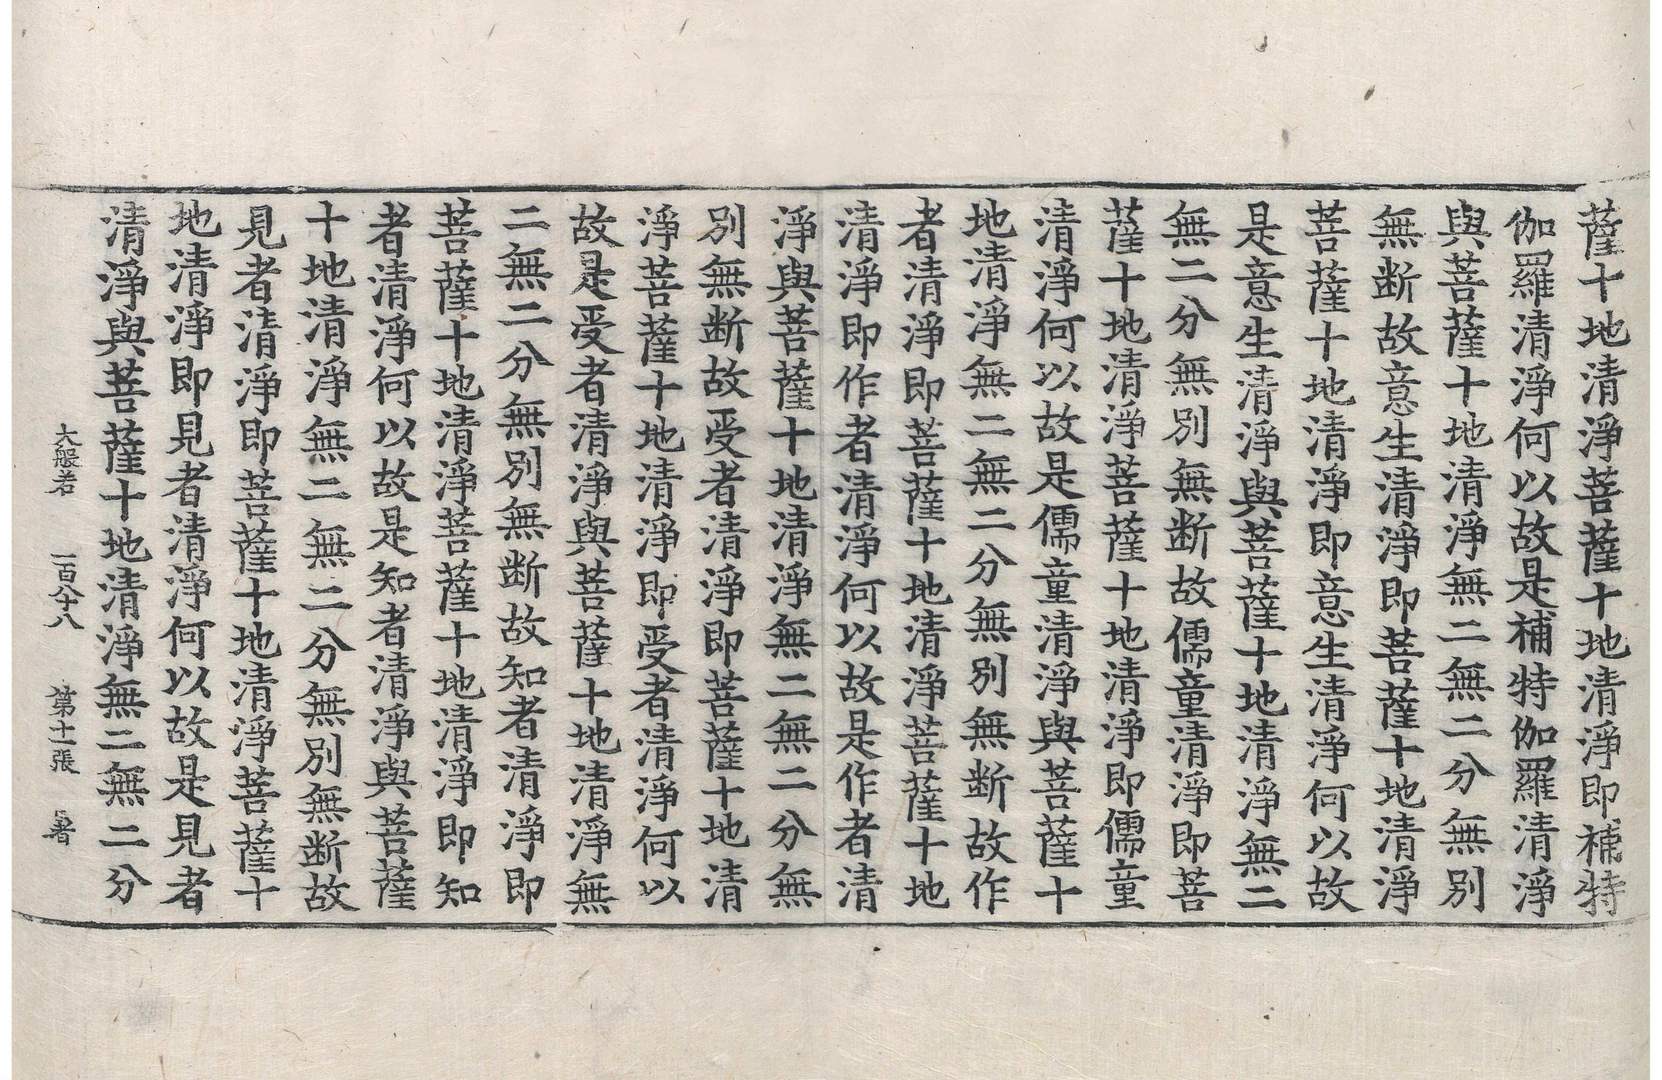 薩十地清淨菩薩十地清淨即補特
伽羅清淨何以故是補特伽羅清淨
與菩薩十地清淨無二無二分無別
無断故意生清淨即菩薩十地清淨
菩薩十地清淨即意生清淨何以故
是意生清淨與菩薩十地清淨無二
無二分無別無断故儒童清淨即菩
薩十地清淨菩薩十地清淨即儒童
清淨何以故是儒童清淨與菩薩十
地清淨無二無二分無別無断故作
者清淨即菩薩十地清淨菩薩十地
清淨即作者清淨何以故是作者清
淨與菩薩十地清淨無二無二分無
別無断故受者清淨即菩薩十地清
淨菩薩十地清淨即受者清淨何以
故是受者清淨與菩薩十地清淨無
二無二分無別無断故知者清淨即
菩薩十地清淨菩薩十地清淨即知
者清淨何以故是知者清淨與菩薩
十地清淨無二無二分無別無断故
見者清淨即菩薩十地清淨菩薩十
地清淨即見者清淨何以故是見者
清淨與菩薩十地清淨無二無二分
大般若 一百八十八 第十一張 暑